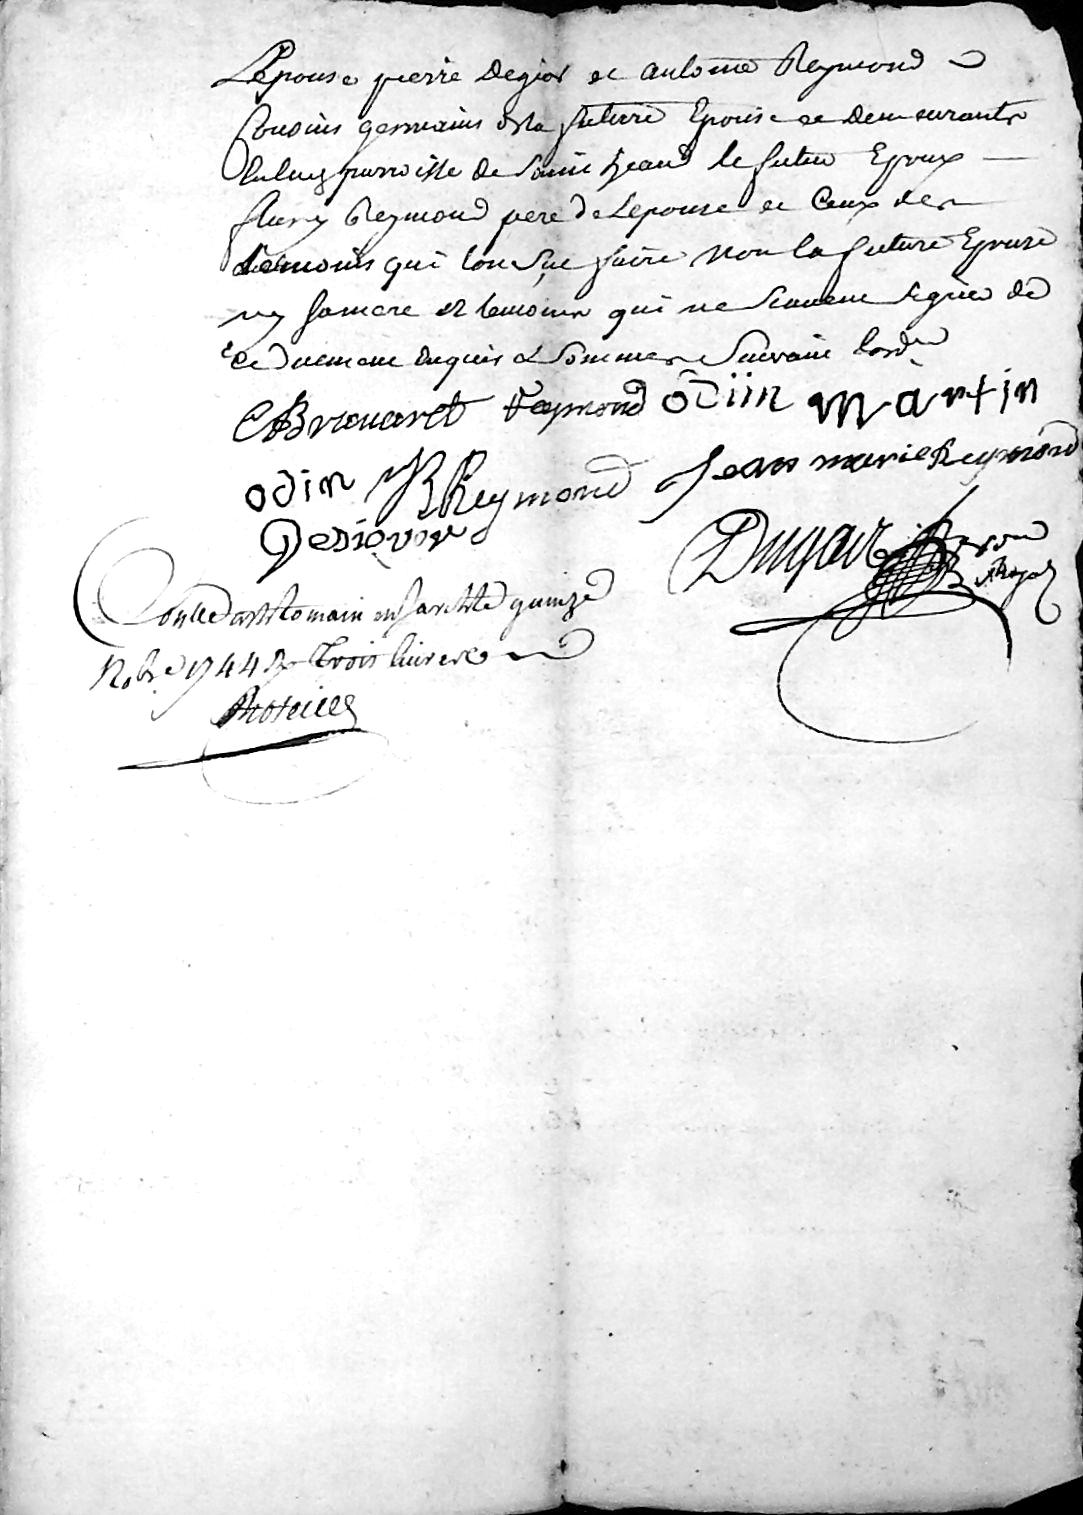 Lepouse pierre degior et antoine Reymond
Cousins germains de la future Epouse et demeurants
parroisse de Saint jean le futur Epoux
fleury Reymond pere de Lepouse et Ceux des
temoins qui lon sçu faire non la future Epouse
ny sa mere et temoins qui ne scavent signer de
ce duement enquis & sommes suivant lord
Brouaret Reymond odiin martin
odin Reymond Jean marie Reymond
Dugas
Controllé a St Romain en Jarest le quinze
Nobre 1744 R trois livres